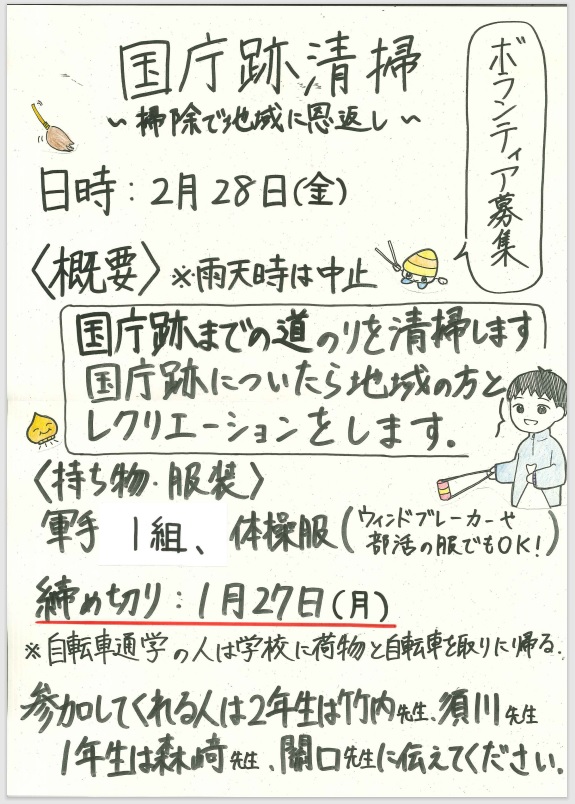 国庁跡清掃
~掃除で地域に恩返し~
ボランティア募集
日時:2月28日(金)
〈概要〉※雨天時は中止
国庁跡までの道のりを清掃します
国庁跡についたら地域の方と
レクリエーションをします.
〈持ち物・服装〉
軍手 1組、体操服(ウィンドブレーカーや
部活の服でもOK!)
締め切り:1月27日(月)
※自転車通学の人は学校に荷物と自転車を取りに帰る.
参加してくれる人は2年生は竹内先生、須川先生
1年生は森崎先生、関口先生に伝えてください.